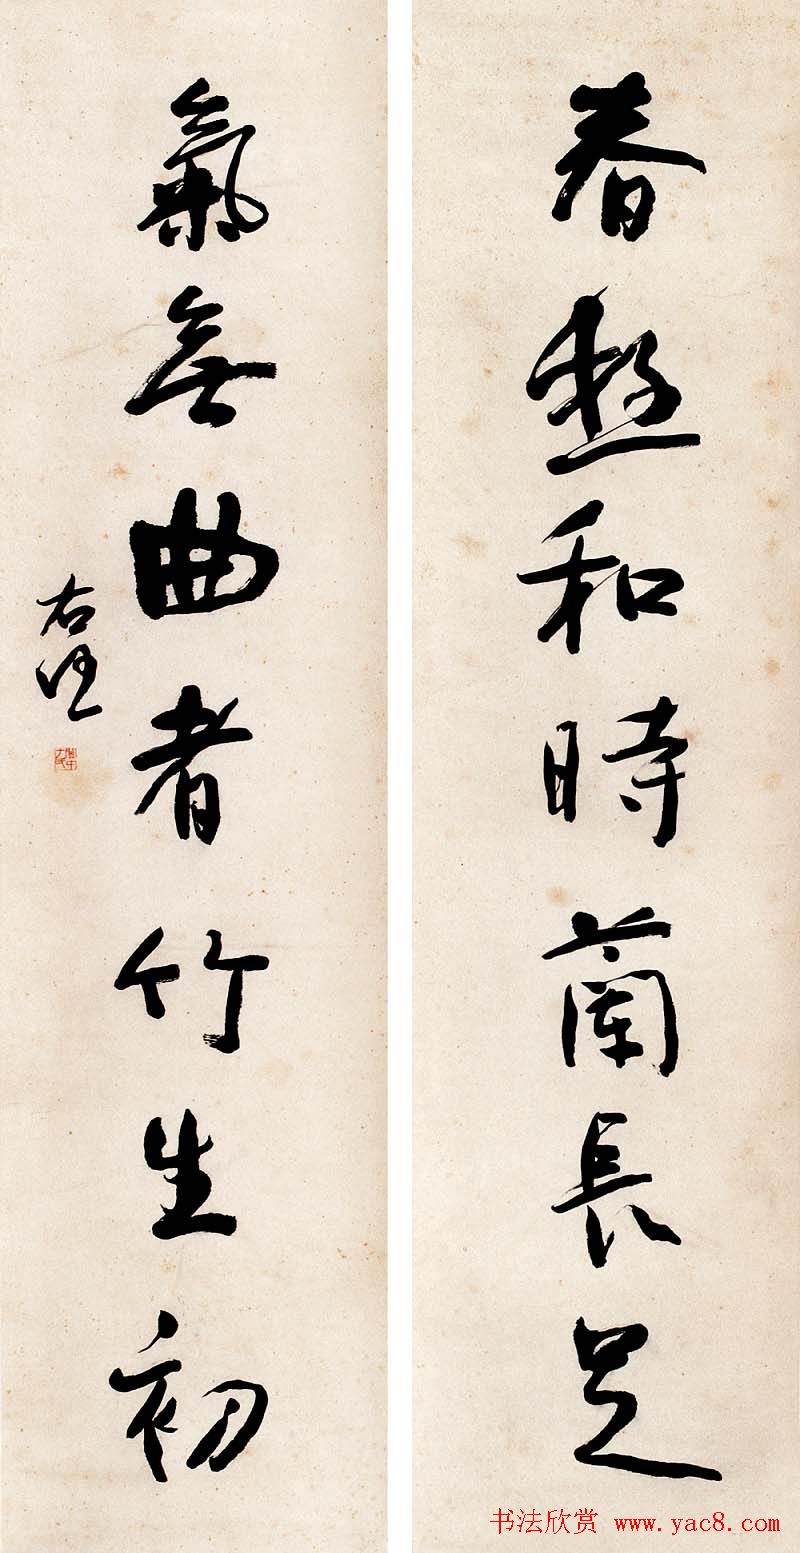 春極和時蘭長足
氣無曲者竹生初
右任
书法欣赏 www.yac8.com